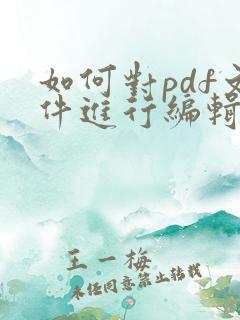 如何對pdf文
件進行編輯
王一梅
未经同意禁止转载